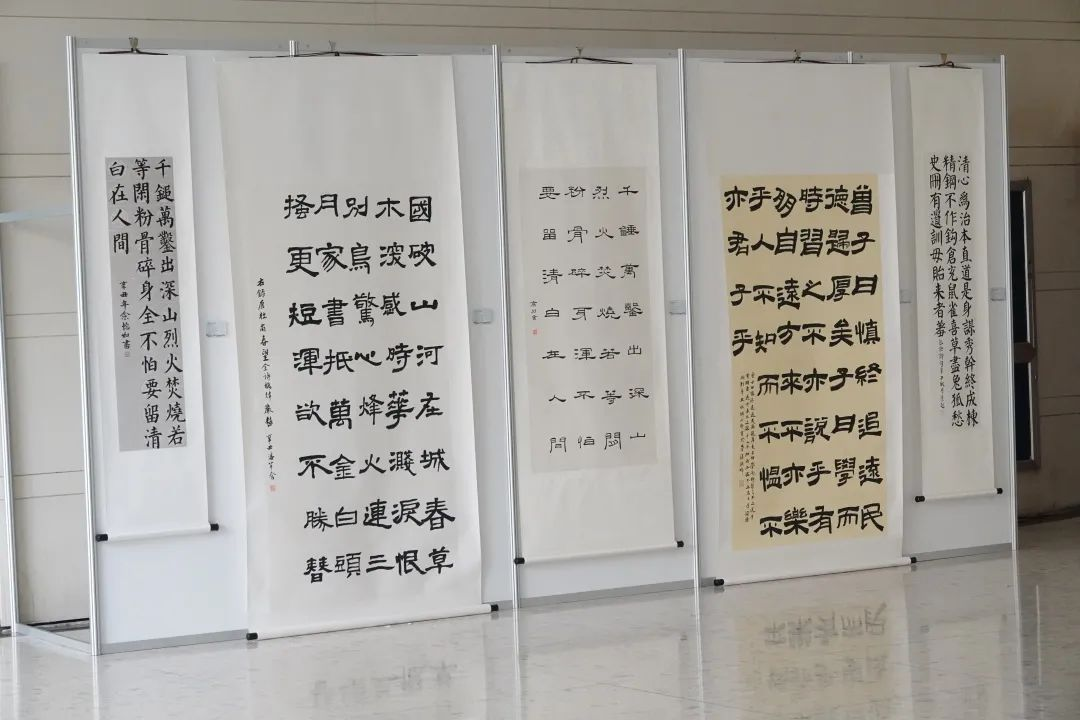 清心為治本直道是身謀秀幹終成棟
精鋼不作鈎倉充鼠雀喜草盡兔狐愁
史冊有遺訓毋貽來者羞
曾子曰慎終追遠民
德歸厚矣子曰學而
時習之不亦說乎有
朋自遠方來不亦樂
乎人不知而不慍不
亦君子乎
千錘萬鑿出深山
烈火焚燒若等閑
粉骨碎身渾不怕
要留清白在人間
國破山河在城春草
木深感時華濺淚恨
別鳥驚心烽火連三
月家書抵萬金白頭
搔更短渾欲不勝簪
右錄唐杜甫春望
千鎚萬鑿出深山烈火焚燒若
等閑粉骨碎身全不怕要留清
白在人間